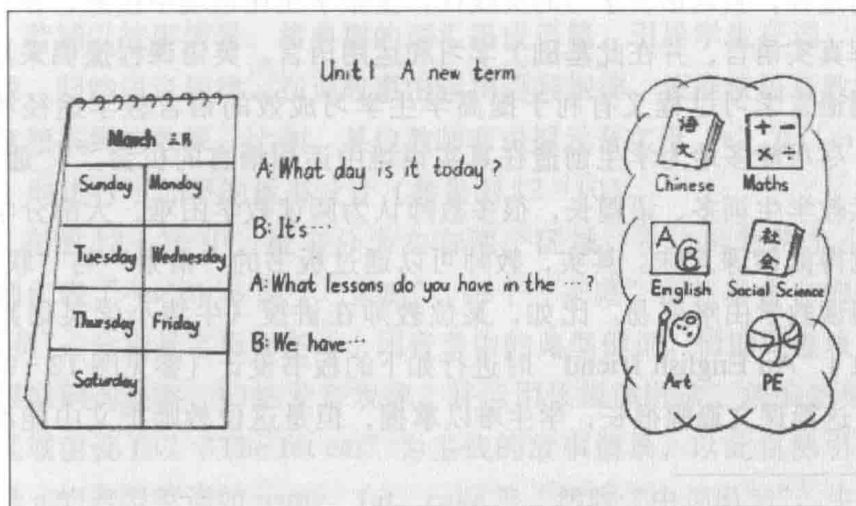 Unit 1 A new term
March 三月
Sunday Monday
Tuesday Wednesday
Thursday Friday
Saturday
A: What day is it today?
B: It's…
A: What lessons do you have in the …?
B: We have…
语文
Chinese
+ − × ÷
Maths
A B
English
社会
Social Science
Art
PE